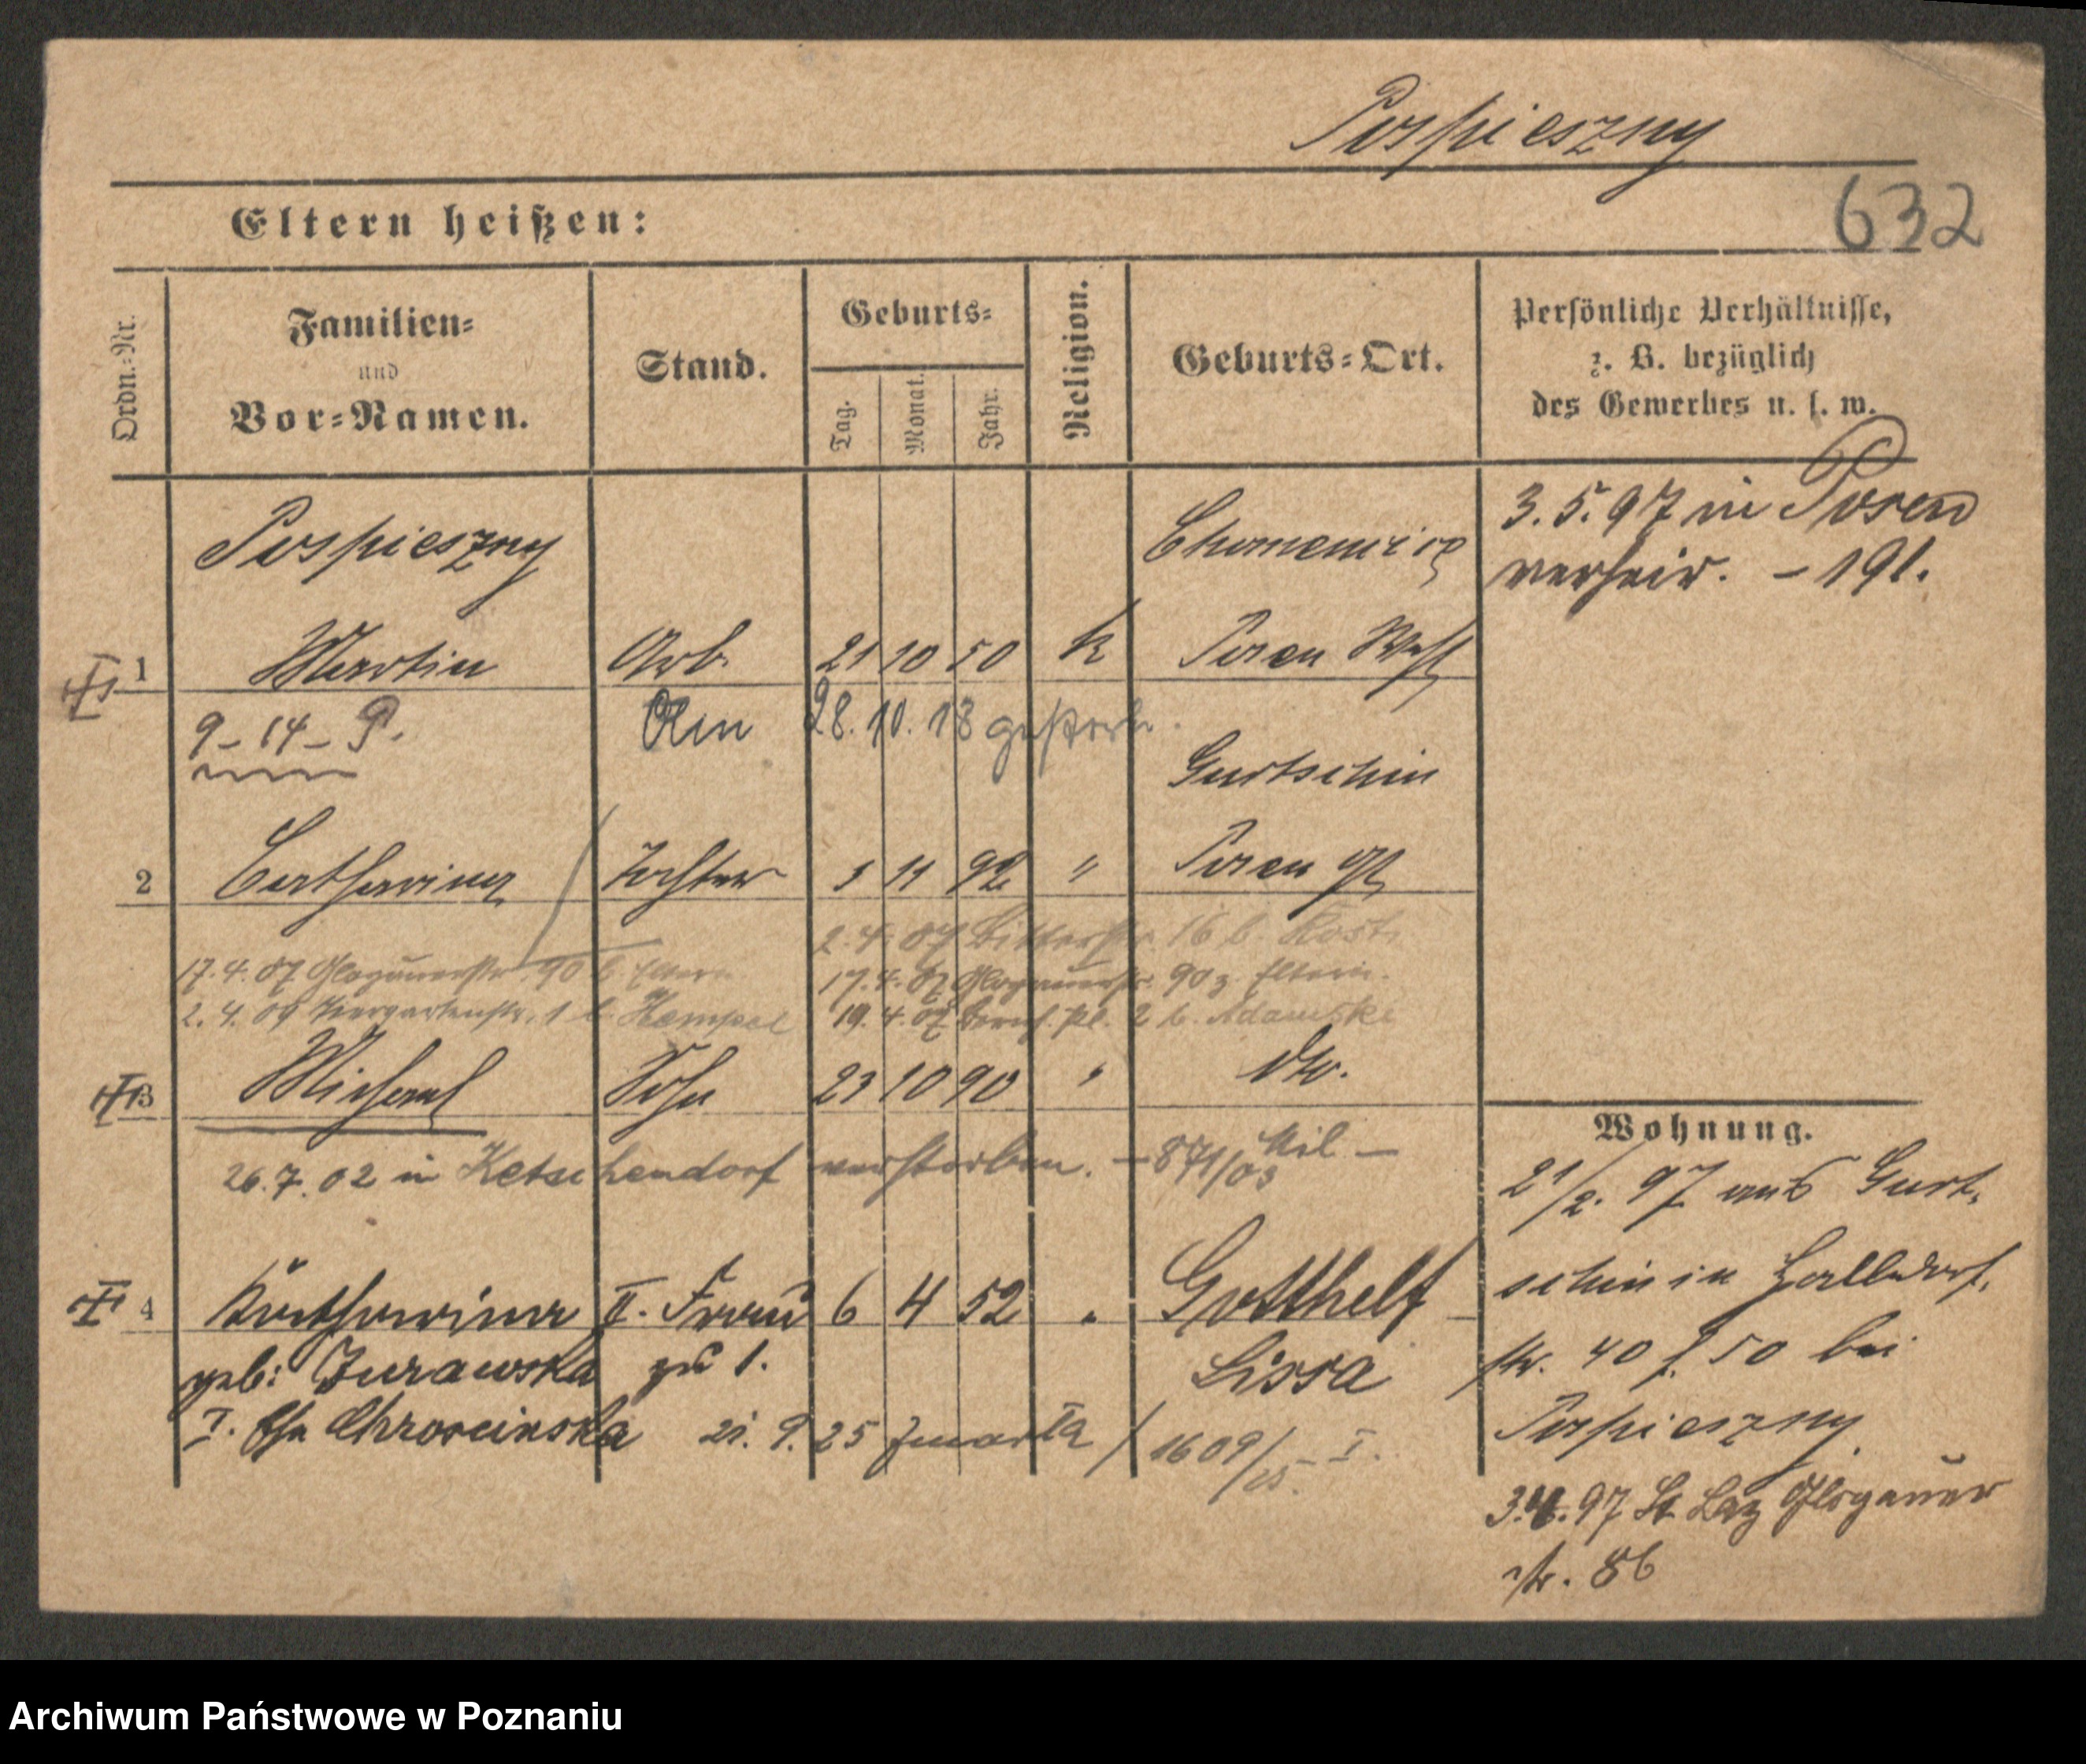 Pospieszny
632
Eltern heißen:
Ordn.-Nr.
Familien-
und
Vor-Namen.
Stand.
Geburts-
Tag.
Monat.
Jahr.
Religion.
Geburts-Ort.
Persönliche Verhältnisse,
z. B. bezüglich
des Gewerbes u. s. w.
Pospieszny
3. 5. 97 in Posen
verheir. – 191.
1 Martin Arb. 21 10 50 k Posen West
9 – 14 – P. Am 28. 10. 18 gestorb.
Gurtschin
2 Catharina Tochter 5 11 92 " Posen Ost
2. 4. 07 Ritterstr. 16 b. Kost.
17. 4. 07 Glogauerstr. 90 b. Eltern
17. 4. 07 Glogauerstr. 90 z. Eltern.
2. 4. 09 Tiergartenstr. 1 b. Hempel
19. 4. 07 2 b. Adamski
3 Michael Sohn 23 10 90 " dto.
26. 7. 02 in Ketschendorf verstorben. – 871/03 Mil –
4 Katharina II. Frau 6 4 52 " Gotthelf
geb: Zurawska zu 1. Lissa
I. Ehe Chroscinska 21. 9. 25 zmarła / 1609/25. I.
Wohnung.
21/2. 97 aus Gurt-
schin in Halldorf-
str. 40 f. 50 bei
Pospieszny
3. 4. 97 St Laz Glogauer
str. 86
Archiwum Państwowe w Poznaniu